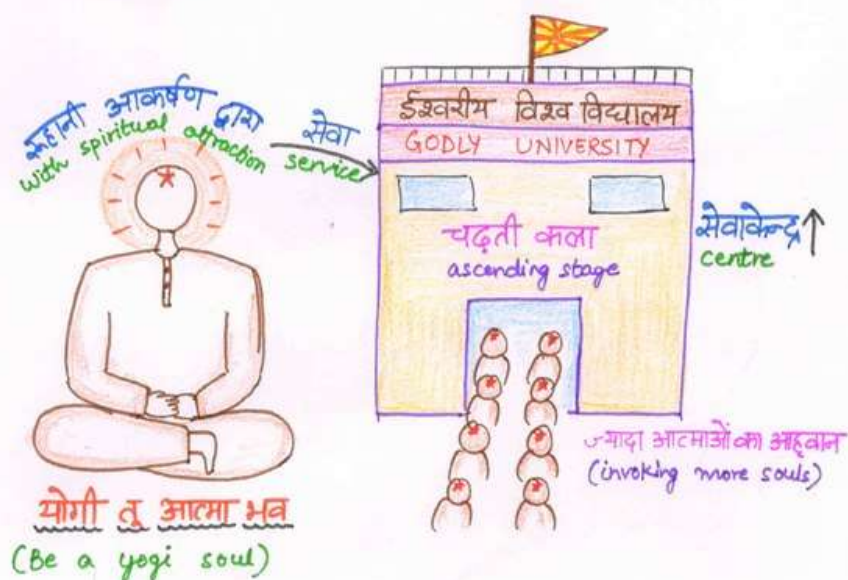 रूहानी आकर्षण द्वारा
with spiritual attraction
सेवा
service
ईश्वरीय विश्व विद्यालय
GODLY UNIVERSITY
चढ़ती कला
ascending stage
सेवाकेन्द्र
centre
ज्यादा आत्माओं का आह्वान
(invoking more souls)
योगी तू आत्मा भव
(Be a yogi soul)